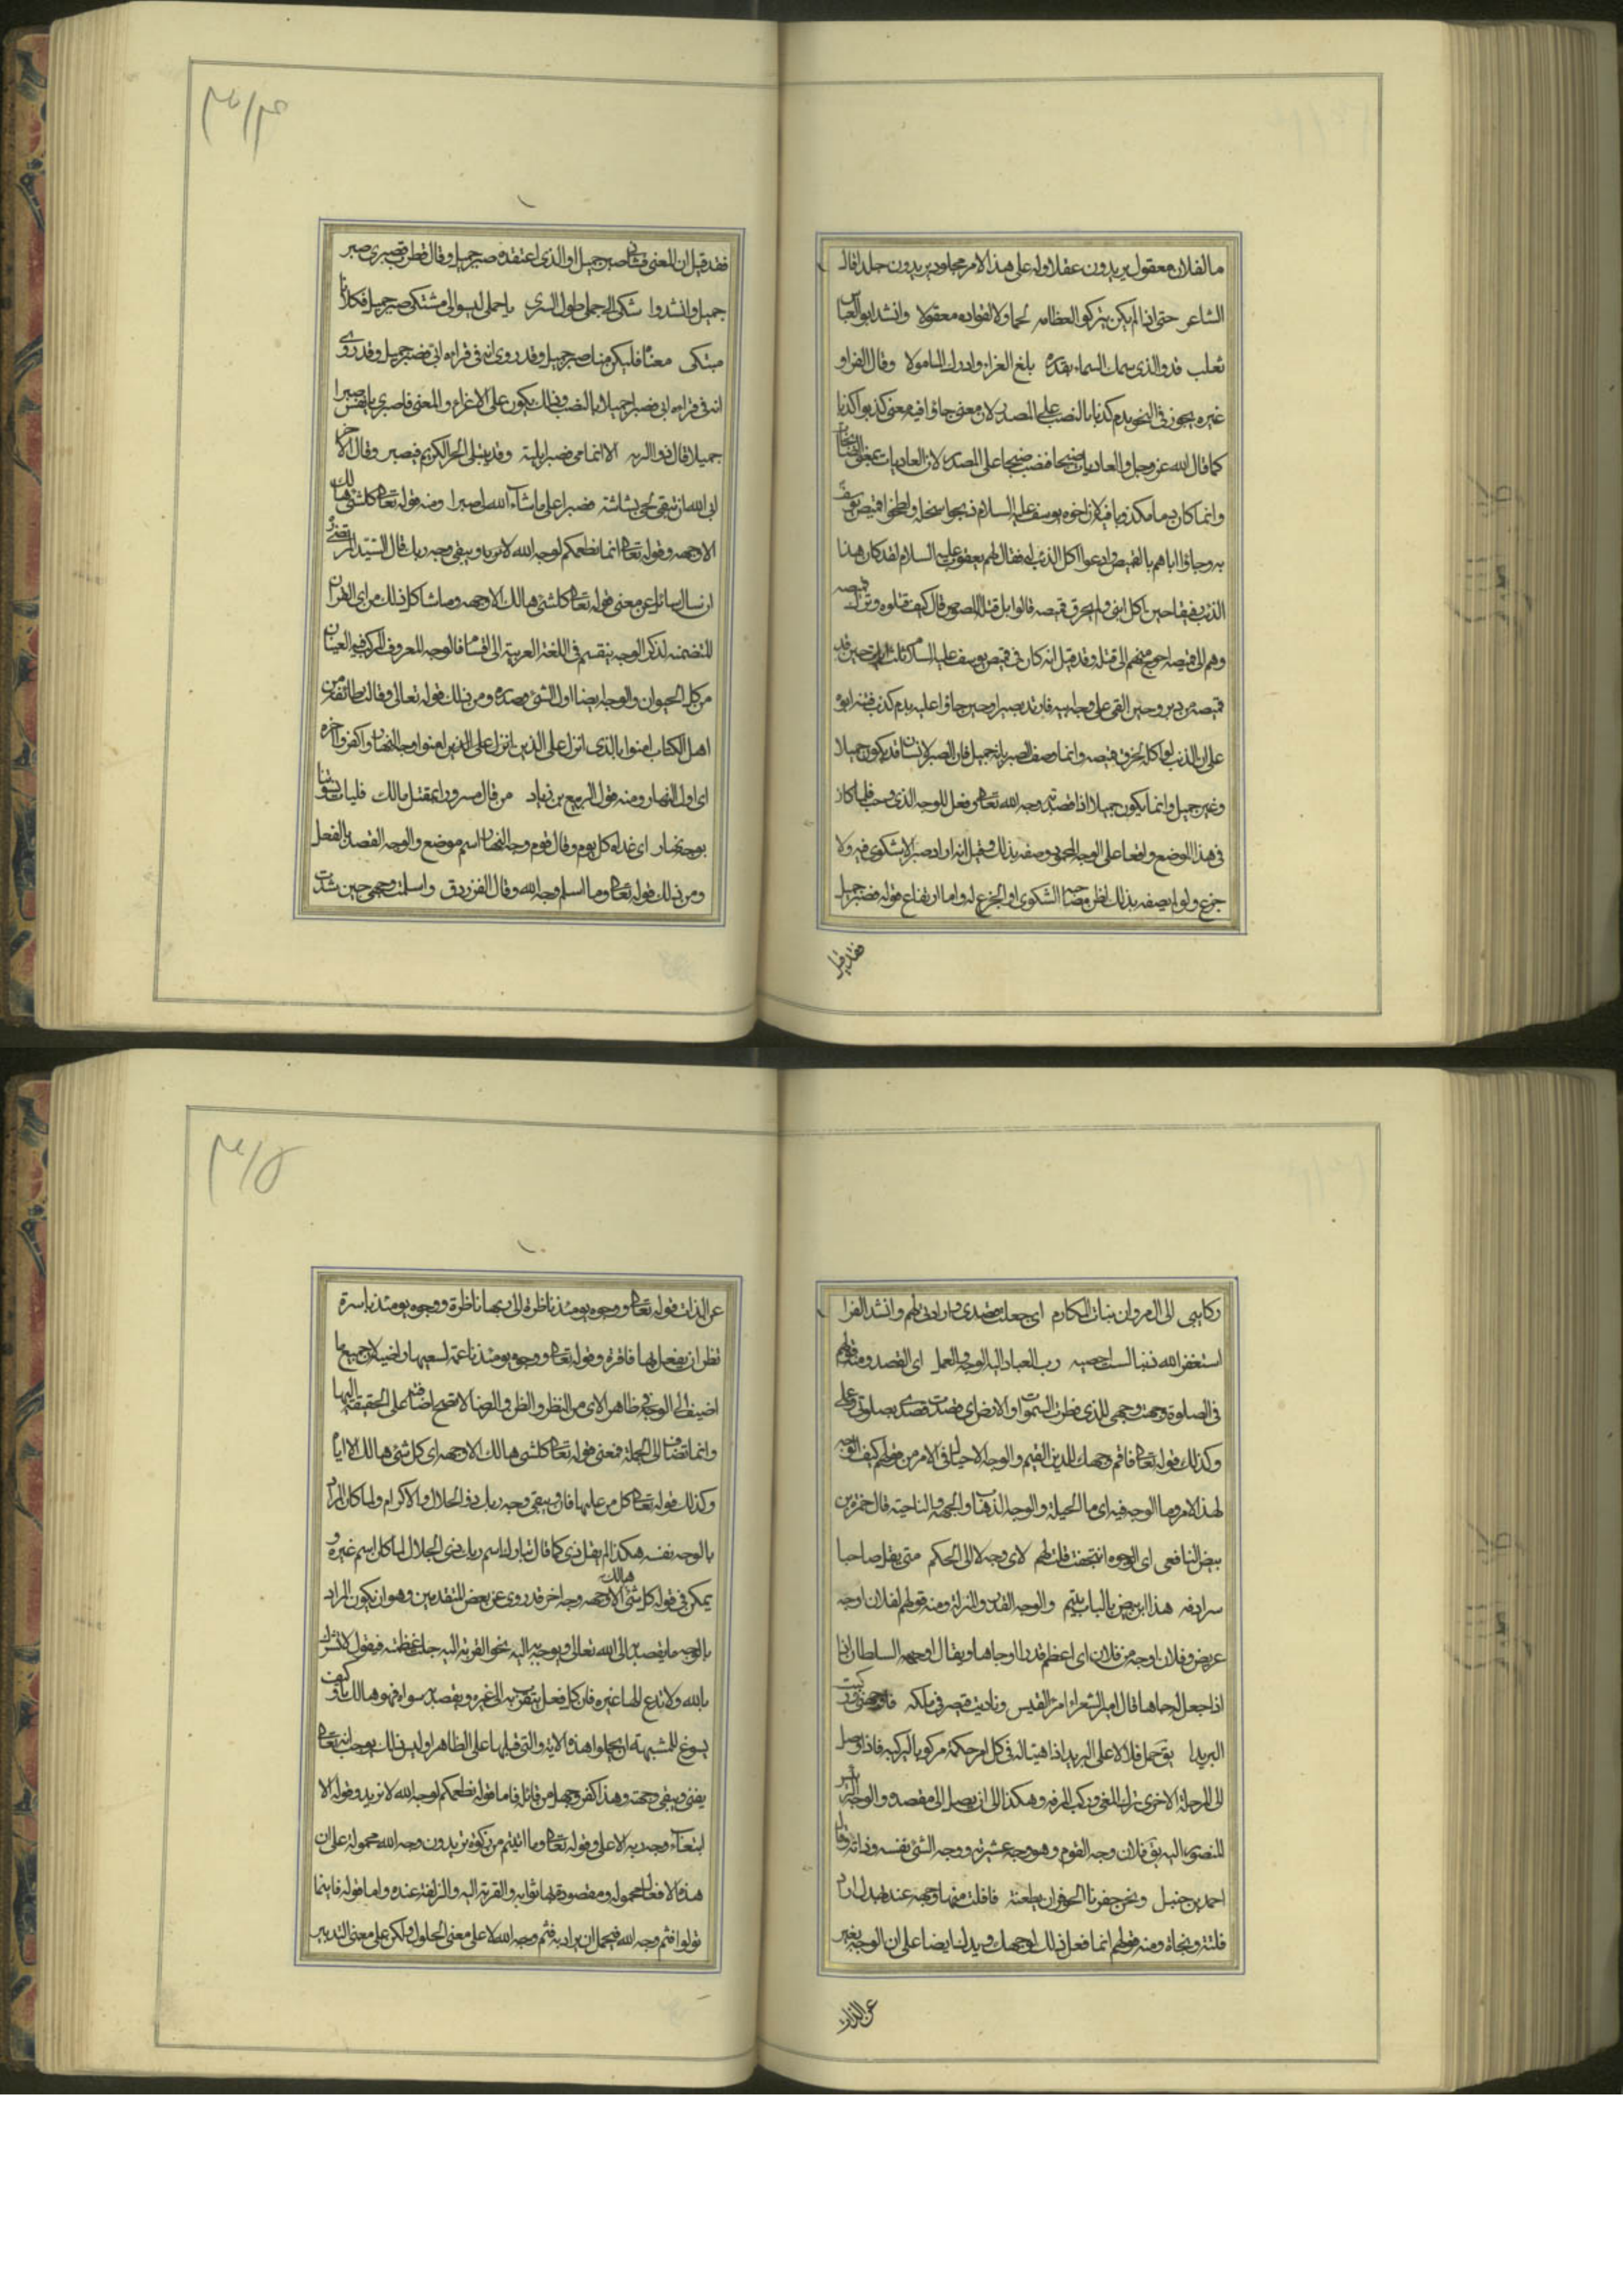 ما لفلان معقول يريدون عقلا وله على هذا الامر مجلود يريدون جلدا قال
الشاعر حتى اذا لم يكن يتركوا لعظامه لحما ولا لفؤاده معقولا وانشد ابو العباس
ثعلب قد والذي سمك السماء بقدرة بلغ العزاء وادرك المامولا وقال الفراء و
غيره يجوز في النحو بدم كذبا بالنصب على المصدر لان معنى جاؤا فيه معنى كذبوا كذبا
كما قال الله عز وجل والعاديات ضبحا فنصب ضبحا على المصدر لان العاديات بمعنى الضابحات
وانما كان دما مكذوبا فيه لان اخوه يوسف عليه السلام ذبحوا سخلة ولطخوا قميص يوسف
به وجاؤا اباهم بالقميص وادعوا اكل الذئب له فقال لهم يعقوب عليه السلام لقد كان هذا
الذئب رفيقا حين اكل ابني ولم يخرق قميصه قالوا بل قتله اللصوص قال كيف قتلوه وتركوا قميصه
وهم الى قميصه احوج منهم الى قتله وقد قيل انه كان في قميص يوسف عليه السلام ثلث ايات حين قد
قميصه من دبر وحين القي على وجه ابيه فارتد بصيرا وحين جاؤا عليه بدم كذب فتنبه ابوه
على ان الذئب لو اكله لخرق قميصه وانما وصف الصبر بانه جميل فان الصبر لانسان قد يكون جميلا
وغير جميل وانما يكون جميلا اذا قصد به وجه الله تعالى وفعل للوجه الذي وجب فلما كان
في هذا الموضع واقعا على الوجه المحمود وصفه بذلك وقيل انه اراد صبرا لا شكوى فيه ولا
جزع ولو لم يصفه بذلك لظن مصاحبة الشكوى او الجزع له واما ارتفاع قوله فصبر جميل
فقد قيل
فقد قيل ان المعنى فشاني صبر جميل او الذي اعتقده صبر جميل وقال قطرب فصبري صبر
جميل وانشدوا شكى الى جملي طول السرى يا جملي ليس الى مشتكى صبر جميل فكلانا
مبتلى معناه فليكن منا صبر جميل وقد روى انه في قراءة ابي فصبر جميل وقد روى
انه في قراءة ابي فصبرا جميلا بالنصب وذلك يكون على الاغراء والمعنى فاصبري يا نفس صبرا
جميلا قال ذو الرمه الا انما مي فصبرا بلية وقد يبتلى الحر الكريم فيصبر وقال الاخر
ابى الله ان تبقى لحي بشاشة فصبرا على ما شاء الله لي صبرا ومنه قوله تعالى كل شئ هالك
الا وجهه وقوله تعالى انما نطعمكم لوجه الله لا نريد ويبقى وجه ربك قال السيد المرتضى
ان سال سائل عن معنى قوله تعالى كل شئ هالك الا وجهه وما شاكل ذلك من اي القران
المتضمنه لذكر الوجه ينقسم في اللغة العربية الى اقسام فالوجه المعروف المركب فيه العينان
من كل الحيوان والوجه ايضا اول الشئ وصدره ومن ذلك قوله تعالى وقالت طائفة من
اهل الكتاب امنوا بالذي انزل على الذين انزل على الذين امنوا وجه النهار واكفروا اخره
اي اول النهار ومنه قول الربيع بن زياد من كان مسرورا بمقتل مالك فليات نسوتنا
بوجه نهار اي غداة كل يوم وقال قوم وجه النهار اسم موضع والوجه القصد بالفعل
ومن ذلك قوله تعالى وما اسلم وجه الله وقال الفرزدق واسلمت وجهي حين شدت
ركايبي الى ال مروان بنات المكارم اي جعلت قصدي وارادتي لهم وانشد الفرا
استغفر الله ذنبا لست احصيه رب العباد اليه الوجه والعمل اي القصد ومنه قولهم
في الصلوة وجهت وجهي للذي فطر السموات والارض اي قصدت قصدي بصلوتي وعملي
وكذلك قوله تعالى فاقم وجهك للدين القيم والوجه الاحتيال في الامر من قولهم كيف الوجه
لهذا الامر وما الوجه فيه اي ما الحيلة والوجه الذهاب والجهة والناحية قال حمزة بن
بيض النافعي اي الوجوه انتجعت قلت لهم لاي وجه الا الى الحكم متى يقل صاحبا
سرادقه هذا ابن بيض بالباب يبتسم والوجه القدر والمنزلة ومنه قولهم لفلان وجه
عريض وفلان اوجه من فلان اي اعظم قدرا وجاها ويقال اوجهه السلطان اذا
اذا جعل له جاها قال امير الشعراء امرؤ القيس ونادمت قيصر في ملكه فاوجهني وركبت
البريدا يق حمل فلان على البريد اذا هيئاله في كل مرحلة مركوبا ليركبه فاذا وصل
الى المرحلة الاخرى نزل المعنى وركب المرفه وهكذا الى ان يصل الى مقصده والوجه الرئيس
المنصور اليه يق فلان وجه القوم وهو وجه عشيرته ووجه الشئ نفسه وذاته وقال
احمد بن جنبل ونحن حفزنا الحوفزان بطعنة فافلت منها وجهه عند نهد اراد
فلتته ونجاة ومنه قولهم انما فعل ذلك لوجهك ويدلنا ايضا على ان الوجه يعبر
عن الذات
عن الذات قوله تعالى ووجوه يومئذ ناظرة الى ربها ناظرة ووجوه يومئذ باسرة
تظن ان يفعل بها فاقرة وقوله تعالى ووجوه يومئذ ناعمة لسعيها راضية لان جميع ما
اضيف الى الوجه في ظاهر الاي من النظر والظن والرضا لا تصح اضافته على الحقيقة اليها
وانما تضاف الى الجملة فمعنى قوله تعالى كل شئ هالك الا وجهه اي كل شئ هالك الا اياه
وكذلك قوله تعالى كل من عليها فان ويبقى وجه ربك ذو الجلال والاكرام ولما كان المراد
بالوجه نفسه هكذا لم يقل ذي كما قال تبارك اسم ربك ذي الجلال لما كان اسم غيره و
يمكن في قوله كل شئ هالك الا وجهه وجه اخر قد روى عن بعض المتقدمين وهو ان يكون المراد
بالوجه ما يقصد به الى الله تعالى ويوجه به اليه نحو القربة اليه جلت عظمته فيقول لا تشرك
بالله ولا تدع الها غيره فان كل فعل يتقرب به الى غيره ويقصد به سواه فهو هالك باطل وكيف
يسوغ للمشبهة ان يحملوا هذه الاية والتي قبلها على الظاهر اوليس ذلك يوجب انه تعالى
يفنى ويبقى وجهه وهذا كفر وجهل من قائله فاما قوله نطعمكم لوجه الله لا نريد وقوله الا
ابتغاء وجه ربه الاعلى وقوله تعالى وما اتيتم من زكوة تريدون وجه الله محمولة على ان
هذه الافعال محموله ومقصود بها ثوابه والقربة اليه والزلفة عنده واما قوله فاينما
تولوا فثم وجه الله فيحمل ان يراد به فثم وجه الله لا على معنى الحلول ولكن على معنى التدبير